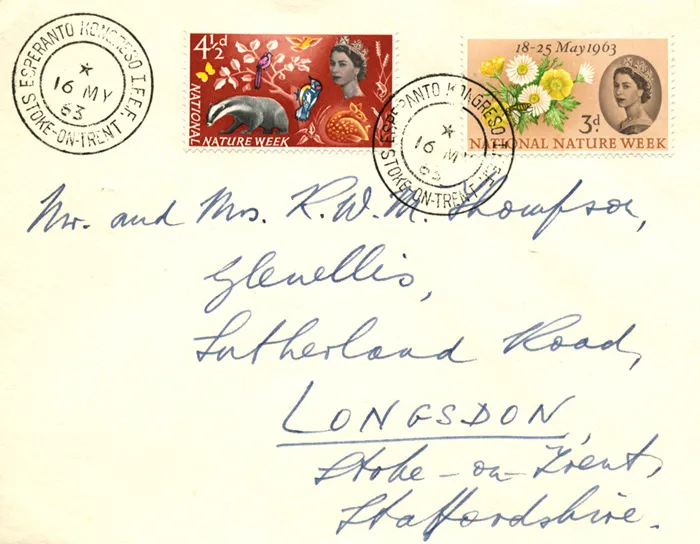 ESPERANTO KONGRESO I.F.E.F.
*
16 MY
63
STOKE-ON-TRENT
4½d
NATIONAL
NATURE WEEK
ESPERANTO KONGRESO
*
16 MY
63
STOKE-ON-TRENT
18-25 May 1963
3d
NATIONAL NATURE WEEK
Mr. and Mrs. R.W.M. Thompson,
Glenellis,
Sutherland Road,
LONGSDON,
Stoke-on-Trent,
Staffordshire.